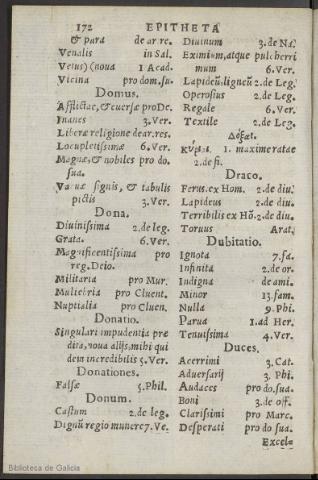 172 EPITHETA
& para de ar. re.
Venalis in Sal.
Vetus) (noua 1 Acad.
Vicina pro dom. su.
Domus.
Afflictæ, & euersæ pro De.
Inanes 3. Ver.
Liberæ religione de ar. res.
Locupletissimæ 6. Ver.
Magnæ, & nobiles pro do.
sua.
Vacuæ signis, & tabulis
pictis 3. Ver.
Dona.
Diuinissima 2. de leg.
Grata. 6. Ver.
Magnificentissima pro
reg. Deio.
Militaria pro Mur.
Muliebria pro Cluent.
Nuptialia pro Cluen.
Donatio.
Singulari impudentia præ
dita, noua alijs, mihi qui
dem incredibilis 5. Ver.
Donationes.
Falsæ 5. Phil.
Donum.
Castum 2. de leg.
Dignũ regio munere 7. Ve.
Diuinum 3. de Na.
Eximium, atque pulcherri
mum 6. Ver.
Lapideũ, ligneũ 2. de Leg.
Operosius 2. de Leg.
Regale 6. Ver.
Textile 2. de Leg.
1. maximè ratae
2. de fi.
Draco.
Ferus. ex Hom. 2. de diu.
Lapideus 2. de diu.
Terribilis ex Hõ. 2. de diu.
Toruus Arat.
Dubitatio.
Ignota 7. fa.
Infinita 2. de or.
Indigna de ami.
Minor 13. fam.
Nulla 9. Phi.
Parua 1. ad Her.
Tenuissima 4. Ver.
Duces.
Acerrimi 3. Cat.
Aduersarij 3. Phi.
Audaces pro do. sua.
Boni 3. de off.
Clarissimi pro Marc.
Desperati pro do sua.
Excel=
Biblioteca de Galicia